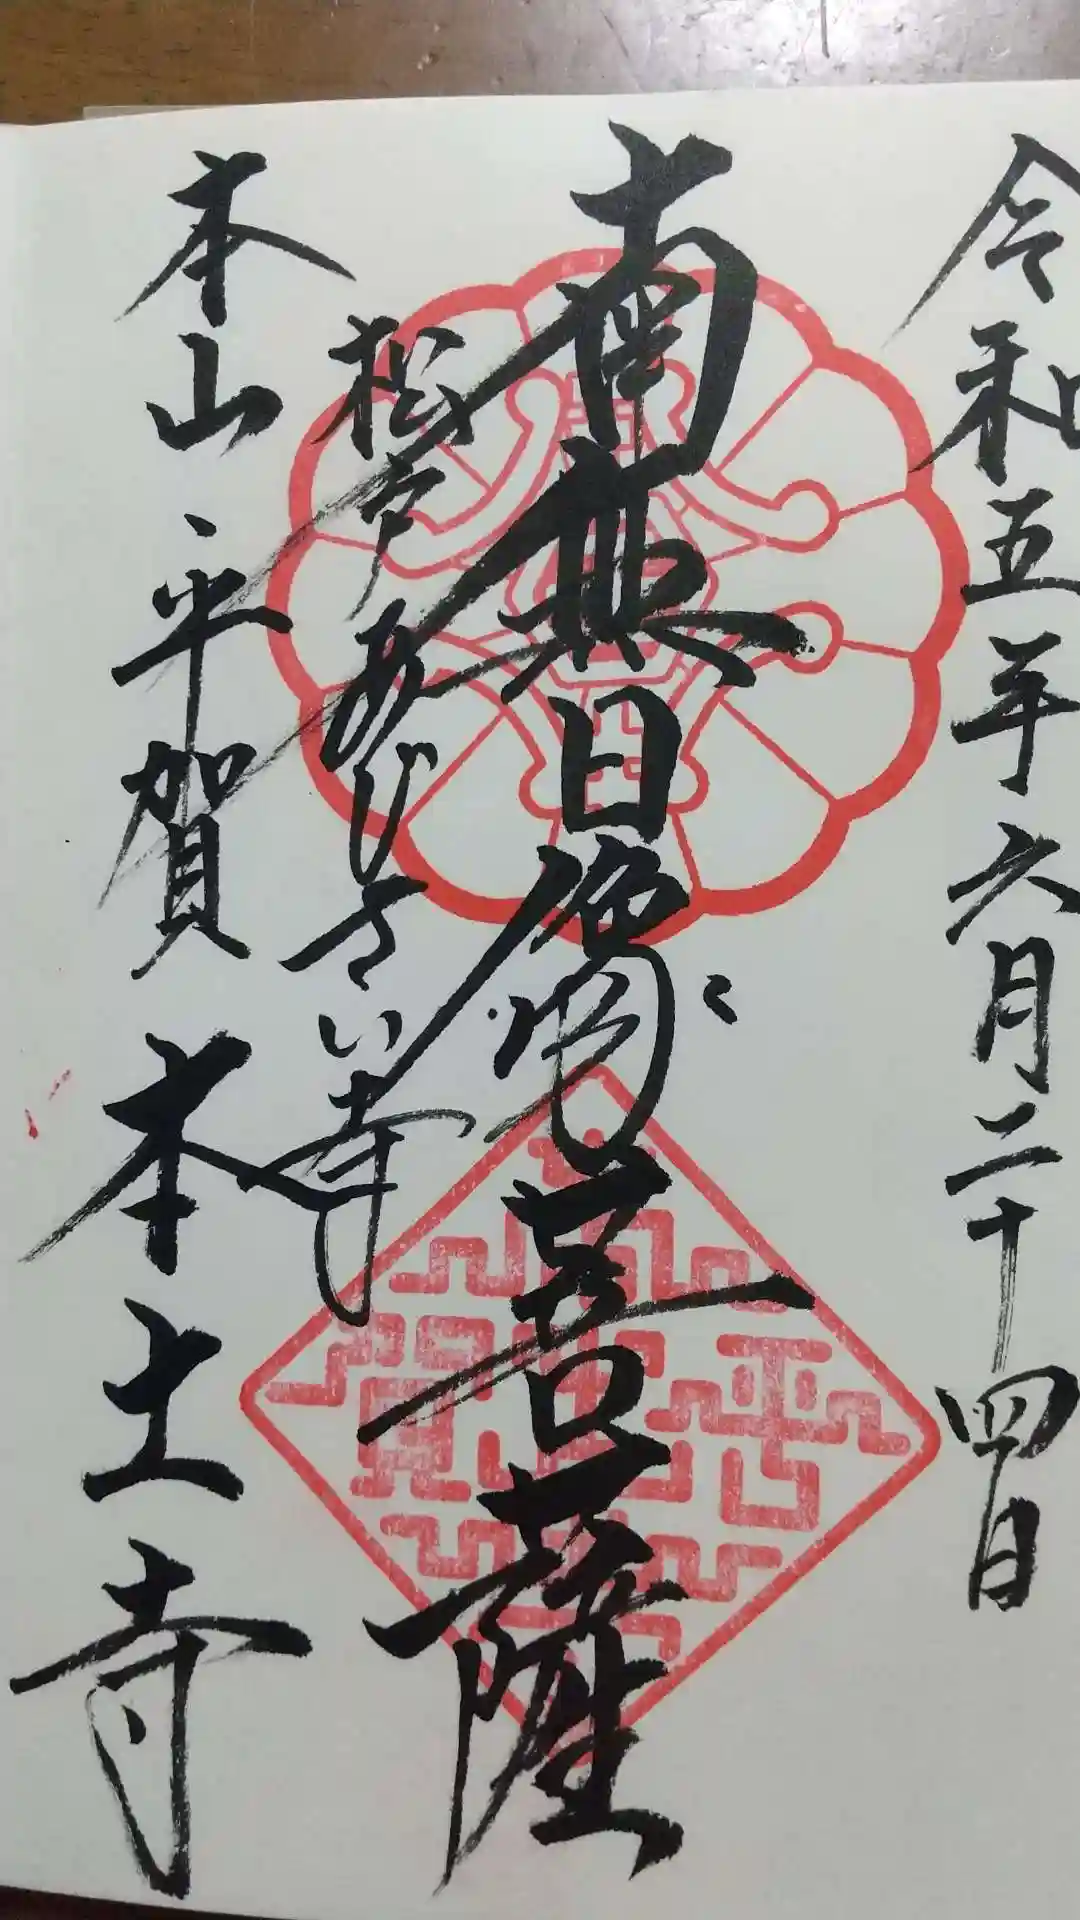 令和五年六月二十四日
南無日像菩薩
松戸あじさい寺
本山平賀本土寺